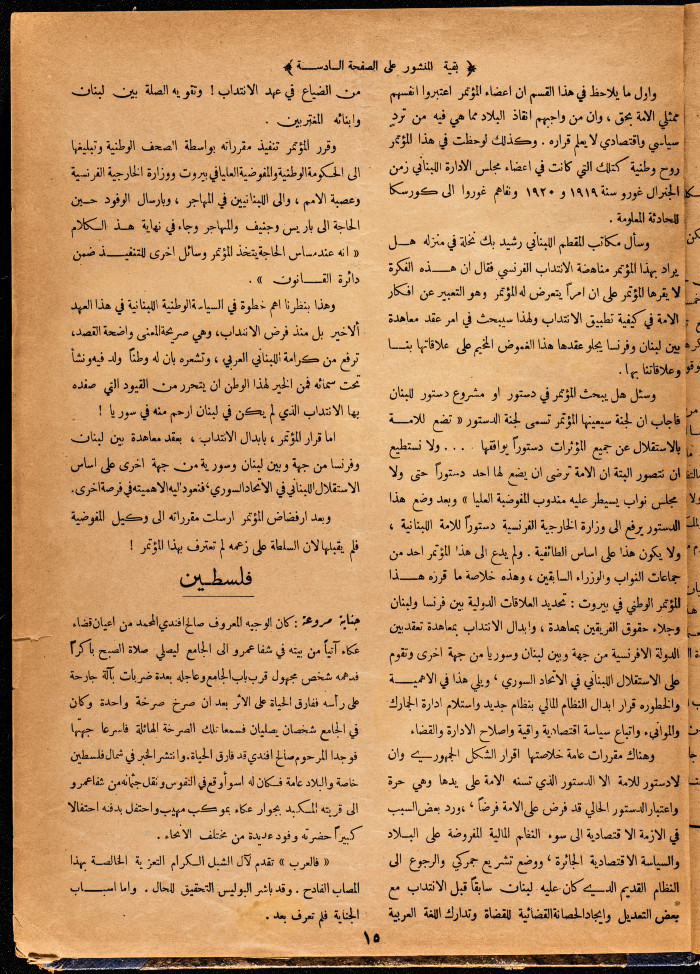 ﴿ بقية المنشور على الصفحة السادسة ﴾
واول ما يلاحظ في هذا القسم ان اعضاء المؤتمر اعتبروا انفسهم
ممثلي الامة بحق ، وان من واجبهم انقاذ البلاد مما هي فيه من تردٍ
سياسي واقتصادي لا يعلم قراره . وكذلك لوحظت في هذا المؤتمر
روح وطنية كتلك التي كانت في اعضاء مجلس الادارة اللبناني زمن
الجنرال غورو سنة ١٩١٩ و ١٩٢٠ ونفاهم غوروا الى كورسكا
للحادثة المعلومة .
وسأل مكاتب المقطم اللبناني رشيد بك نخلة في منزله هل
يراد بهذا المؤتمر مناهضة الانتداب الفرنسي فقال ان هذه الفكرة
لا يقرها المؤتمر على ان امراً يتعرض له المؤتمر وهو التعبير عن افكار
الامة في كيفية تطبيق الانتداب ولهذا سيبحث في امر عقد معاهدة
بين لبنان وفرنسا يجلو عقدها هذا الغموض المخيم على علاقاتها بنا
وعلاقاتنا بها .
وسئل هل يبحث المؤتمر في دستور او مشروع دستور للبنان
فاجاب ان لجنة سيعينها المؤتمر تسمى لجنة الدستور « تضع للامة
بالاستقلال عن جميع المؤثرات دستوراً يوافقها . . . ولا نستطيع
ان نتصور البتة ان الامة ترضى ان يضع لها احد دستوراً حتى ولا
مجلس نواب يسيطر عليه مندوب المفوضية العليا » وبعد وضع هذا
الدستور يرفع الى وزارة الخارجية الفرنسية دستوراً للامة اللبنانية ،
ولا يكون هذا على اساس الطائفية . ولم يدع الى هذا المؤتمر احد من
جماعات النواب والوزراء السابقين ، وهذه خلاصة ما قرره هذا
المؤتمر الوطني في بيروت : تحديد العلاقات الدولية بين فرنسا ولبنان
وجلاء حقوق الفريقين بمعاهدة ، وابدال الانتداب بمعاهدة تعقد بين
الدولة الافرنسية من جهة وبين لبنان وسوريا من جهة اخرى وتقوم
على الاستقلال اللبناني في الاتحاد السوري ، ويلي هذا في الاهمية
والخطوره قرار ابدال النظام المالي بنظام جديد واستلام ادارة الجمارك
والموانيء واتباع سياسة اقتصادية واقية واصلاح الادارة والقضاء
وهناك مقررات عامة خلاصتها اقرار الشكل الجمهوري وان
لادستور للامة الا الدستور الذي تسنه الامة على يدها وهي حرة
واعتبار الدستور الحالي قد فرض على الامة فرضاً ، ورد بعض السبب
في الازمة الاقتصادية الى سوء النظام المالية المفروضة على البلاد
والسياسة الاقتصادية الجائرة ، ووضع تشريع جمركي والرجوع الى
النظام القديم الذي كان عليه لبنان سابقاً قبل الانتداب مع
بعض التعديل وايجاد الحصانة القضائية للقضاة وتدارك اللغة العربية
من الضياع في عهد الانتداب ! وتقويه الصلة بين لبنان
وابنائه المغتربين .
وقرر المؤتمر تنفيذ مقرراته بواسطة الصحف الوطنية وتبليغها
الى الحكومة الوطنية والمفوضية العليا في بيروت ووزارة الخارجية الفرنسية
وعصبة الامم ، والى اللبنانيين في المهاجر ، وبارسال الوفود حين
الحاجة الى باريس وجنيف والمهاجر وجاء في نهاية هذا الكلام
« انه عند مساس الحاجة يتخذ المؤتمر وسائل اخرى للتنفيذ ضمن
دائرة القانون » .
وهذا بنظرنا اهم خطوة في السياسة الوطنية اللبنانية في هذا العهد
الاخير بل منذ فرض الانتداب، وهي صريحة المعنى واضحة القصد،
ترفع من كرامة اللبناني العربي ، وتشعره بان له وطناً ولد فيه ونشأ
تحت سمائه فمن الخير لهذا الوطن ان يتحرر من القيود التي صفده
بها الانتداب الذي لم يكن في لبنان ارحم منه في سوريا !
اما قرار المؤتمر ، بابدال الانتداب ، بعقد معاهدة بين لبنان
وفرنسا من جهة وبين لبنان وسورية من جهة اخرى على اساس
الاستقلال اللبناني في الاتحاد السوري ، فنعود اليه لاهميته في فرصة اخرى.
وبعد ارفضاض المؤتمر ارسلت مقرراته الى وكيل المفوضية
فلم يقبلها لان السلطة على زعمه لم تعترف بهذا المؤتمر !
فلسطين
جناية مروعة : كان الوجيه المعروف صالح افندي المحمد من اعيان قضاء
عكاء آتياً من بيته في شفا عمرو الى الجامع ليصلي صلاة الصبح باكراً
فدهمه شخص مجهول قرب باب الجامع وعاجله بعدة ضربات بآلة جارحة
على رأسه ففارق الحياة على الاثر بعد ان صرخ صرخة واحدة وكان
في الجامع شخصان يصليان فسمعا تلك الصرخة الهائلة فاسرعا جهتها
فوجدا المرحوم صالح افندي قد فارق الحياة. وانتشر الخبر في شمال فلسطين
خاصة والبلاد عامة فكان له اسوأ وقع في النفوس ونقل جثمانه من شفا عمرو
الى قريته المكسبد بجوار عكاء بموكب مهيب واحتفل بدفنه احتفالا
كبيراً حضرته وفود عديدة من مختلف الانحاء .
« فالعرب » تقدم لآل الشبل الكرام التعزية الخالصة بهذا
المصاب الفادح . وقد باشر البوليس التحقيق للحال . واما اسباب
الجناية فلم تعرف بعد .
١٥